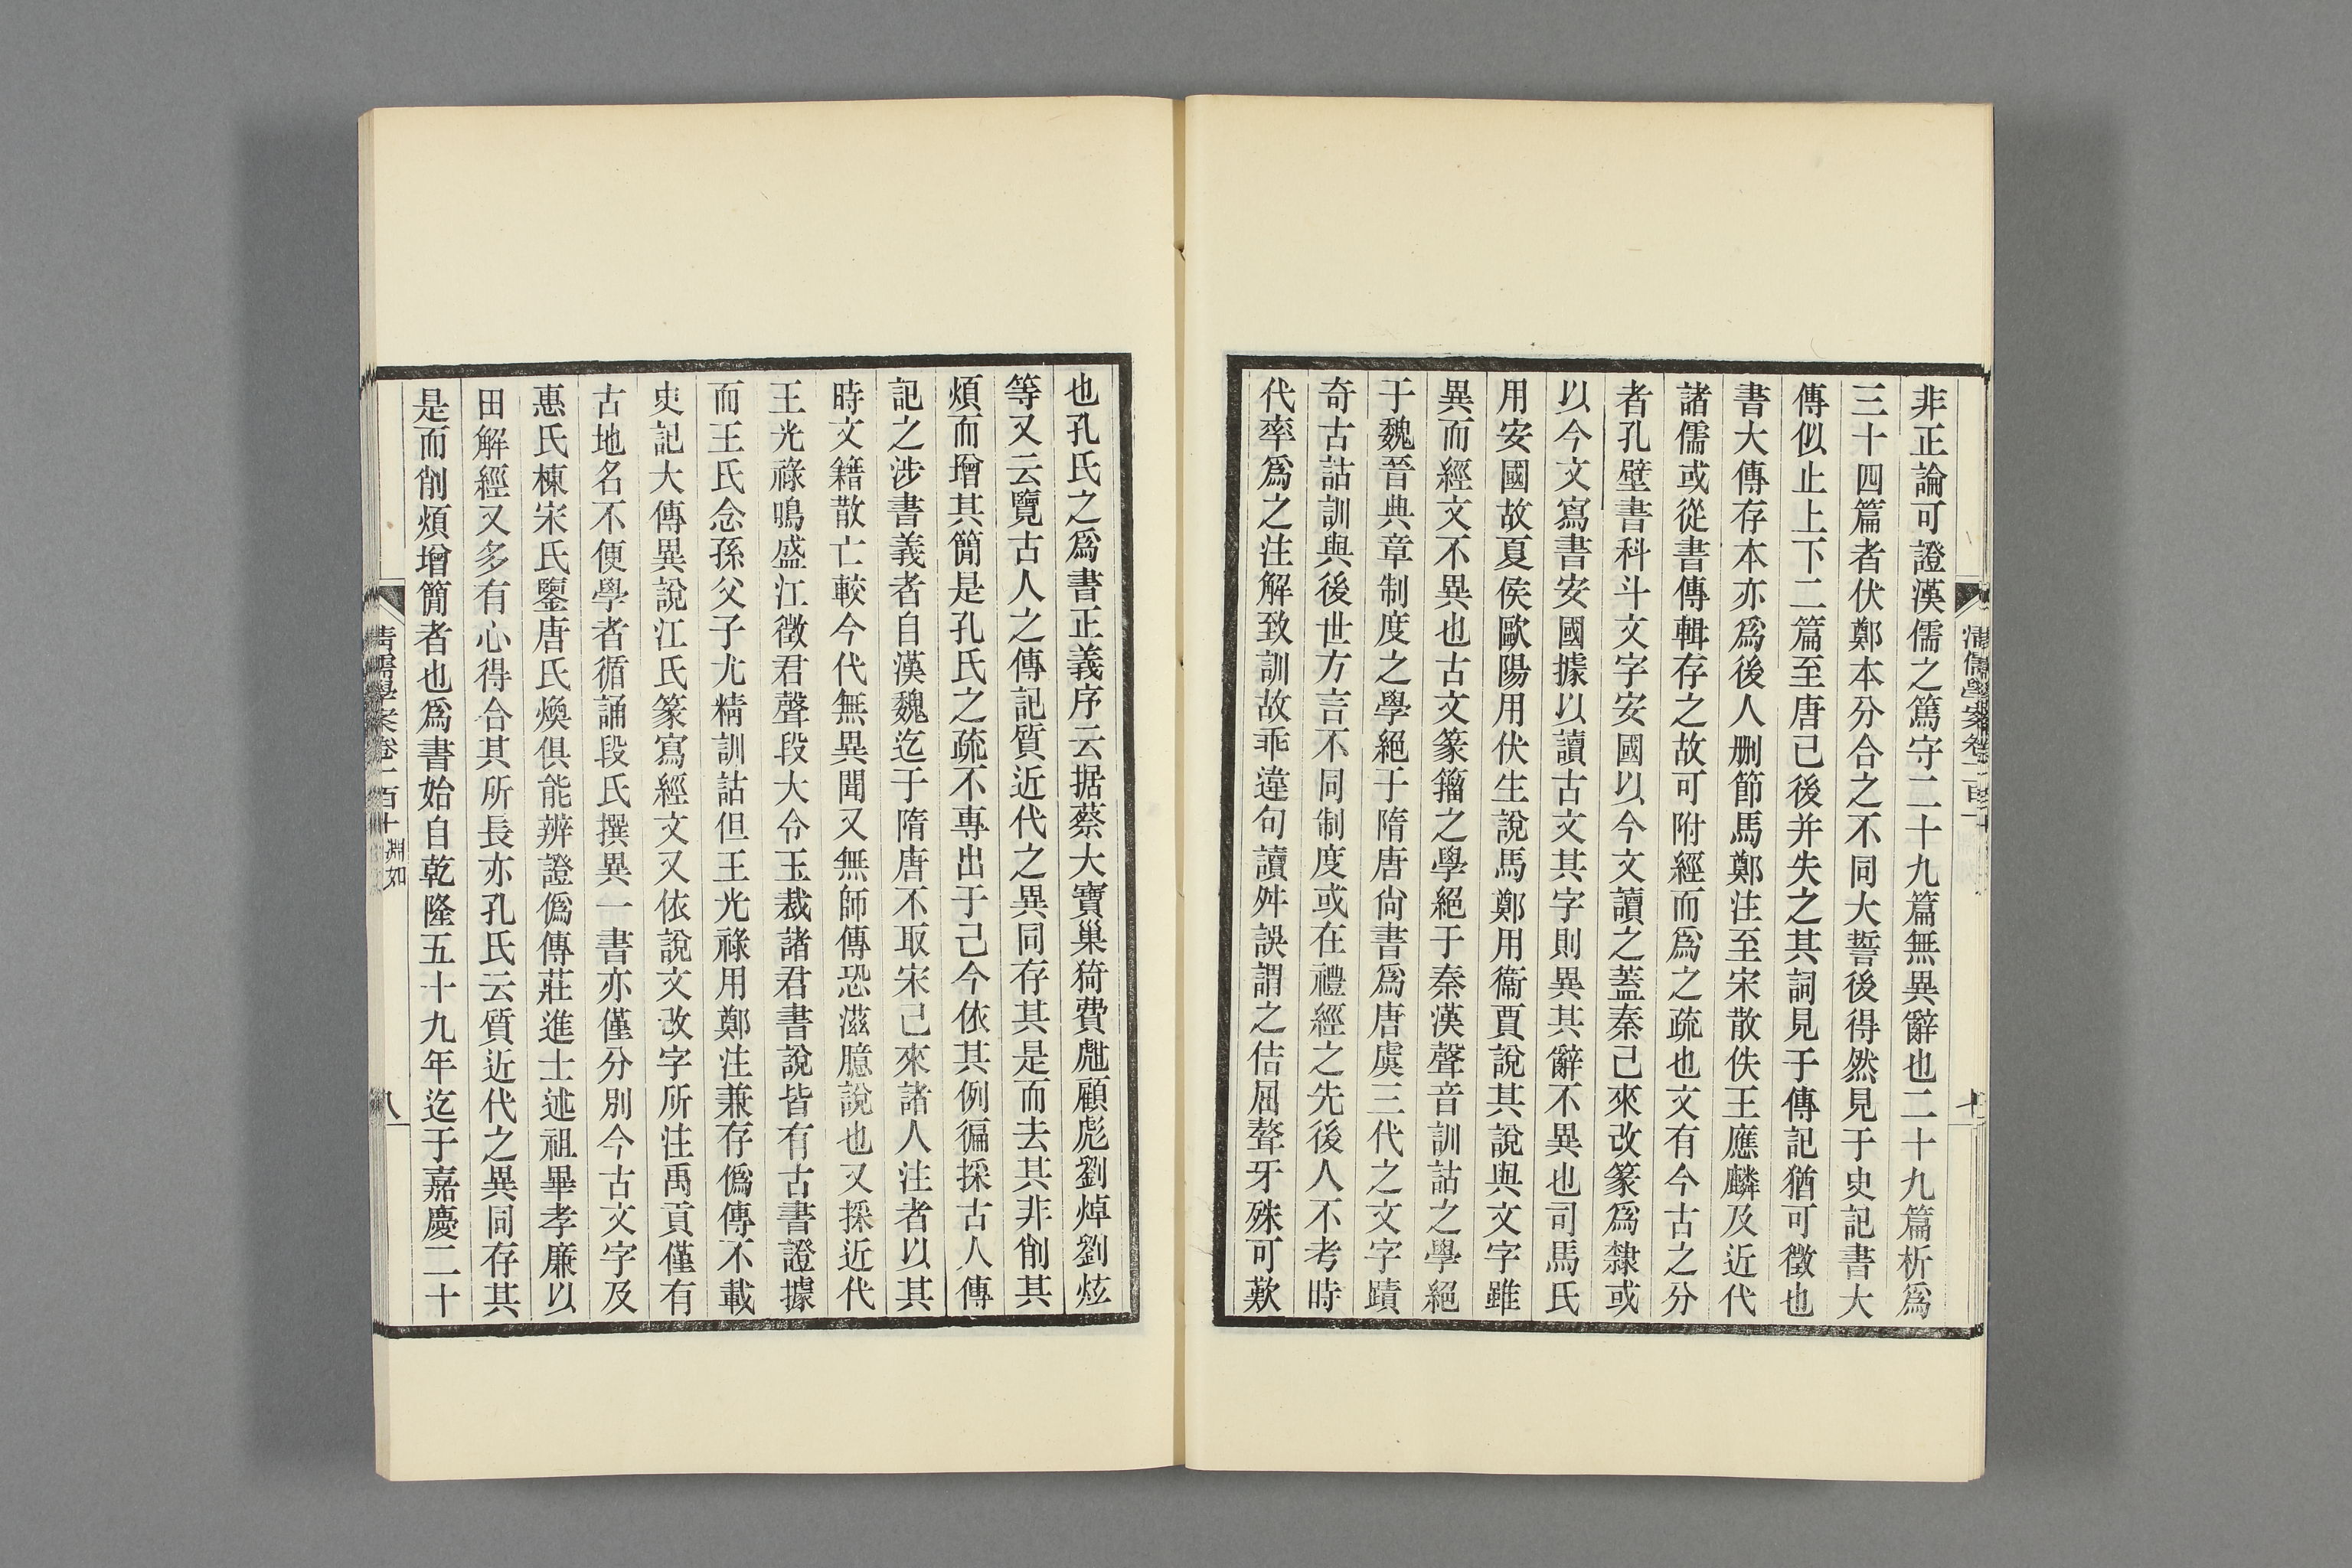 非正論可證漢儒之篤守二十九篇無異辭也二十九篇析爲
三十四篇者伏鄭本分合之不同大誓後得然見于史記書大
傳似止上下二篇至唐已後并失之其詞見于傳記猶可徵也
書大傳存本亦爲後人刪節馬鄭注至宋散佚王應麟及近代
諸儒或從書傳輯存之故可附經而爲之疏也文有今古之分
者孔壁書科斗文字安國以今文讀之蓋秦已來改篆爲隸或
以今文寫書安國據以讀古文其字則異其辭不異也司馬氏
用安國故夏侯歐陽用伏生說馬鄭用衞賈說其說與文字雖
異而經文不異也古文篆籀之學絕于秦漢聲音訓詁之學絕
于魏晉典章制度之學絕于隋唐尙書爲唐虞三代之文字蹟
奇古詁訓與後世方言不同制度或在禮經之先後人不考時
代率爲之注解致訓故乖違句讀舛誤謂之佶屈聱牙殊可歎
也孔氏之爲書正義序云据蔡大寶巢猗費甝顧彪劉焯劉炫
等又云覽古人之傳記質近代之異同存其是而去其非削其
煩而增其簡是孔氏之疏不專出于己今依其例徧採古人傳
記之涉書義者自漢魏迄于隋唐不取宋已來諸人注者以其
時文籍散亡較今代無異聞又無師傳恐滋臆說也又採近代
王光祿鳴盛江徵君聲段大令玉裁諸君書說皆有古書證據
而王氏念孫父子尤精訓詁但王光祿用鄭注兼存僞傳不載
史記大傳異說江氏篆寫經文又依說文改字所注禹貢僅有
古地名不便學者循誦段氏撰異一書亦僅分別今古文字及
惠氏棟宋氏鑒唐氏煥俱能辨證僞傳莊進士述祖畢孝廉以
田解經又多有心得合其所長亦孔氏云質近代之異同存其
是而削煩增簡者也爲書始自乾隆五十九年迄于嘉慶二十
清儒學案卷一百十 淵如
八